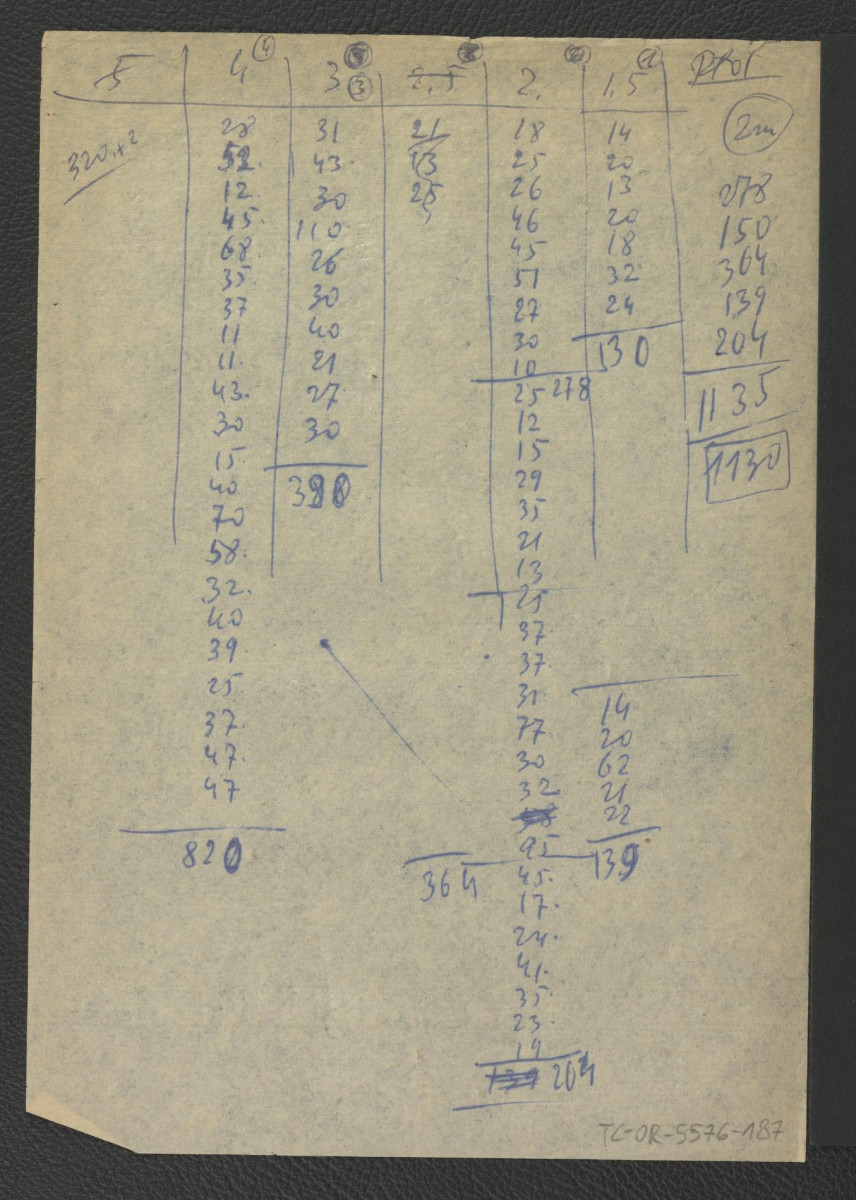 5 4 ④ 3 ③ 2,5 2, 1,5
2m
320 m²
28 31 21 18 14
52. 43. 13 25 20 278
12 30 25 26 13 150
45. 110 46 20 364
68. 26 45 18 139
35 30 51 32 204
37 40 27 24 1135
11 21 30 130 1130
11. 27 10
43. 30 25 278
30 390 12
15 15
40 29
70 35
58. 21
32. 13
40 25
39 37
25 37
37. 31 14
47. 77 20
47 30 62
820 32 21
22
95 139
364 45.
17.
24.
41.
35
23.
19
204
TC-OR-5576-187